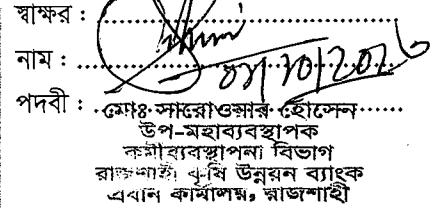 স্বাক্ষর : ..........................................
নাম : ..........................................
পদবী : মোঃ সারোওয়ার হোসেন
উপ-মহাব্যবস্থাপক
কর্মীব্যবস্থাপনা বিভাগ
রাজশাহী কৃষি উন্নয়ন ব্যাংক
প্রধান কার্যালয়, রাজশাহী